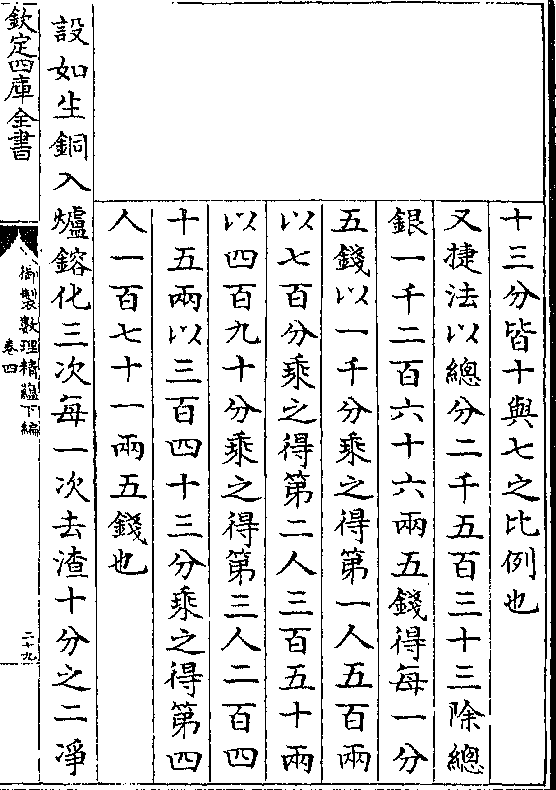 十三分皆十與七之比例也
又捷法以總分二千五百三十三除總
銀一千二百六十六兩五錢得每一分
五錢以一千分乘之得第一人五百兩
以七百分乘之得第二人三百五十兩
以四百九十分乘之得第三人二百四
十五兩以三百四十三分乘之得第四
人一百七十一兩五錢也
設如生銅入爐鎔化三次每一次去渣十分之二凈
欽定四庫全書
御製數理精蘊下編
卷四
二十九